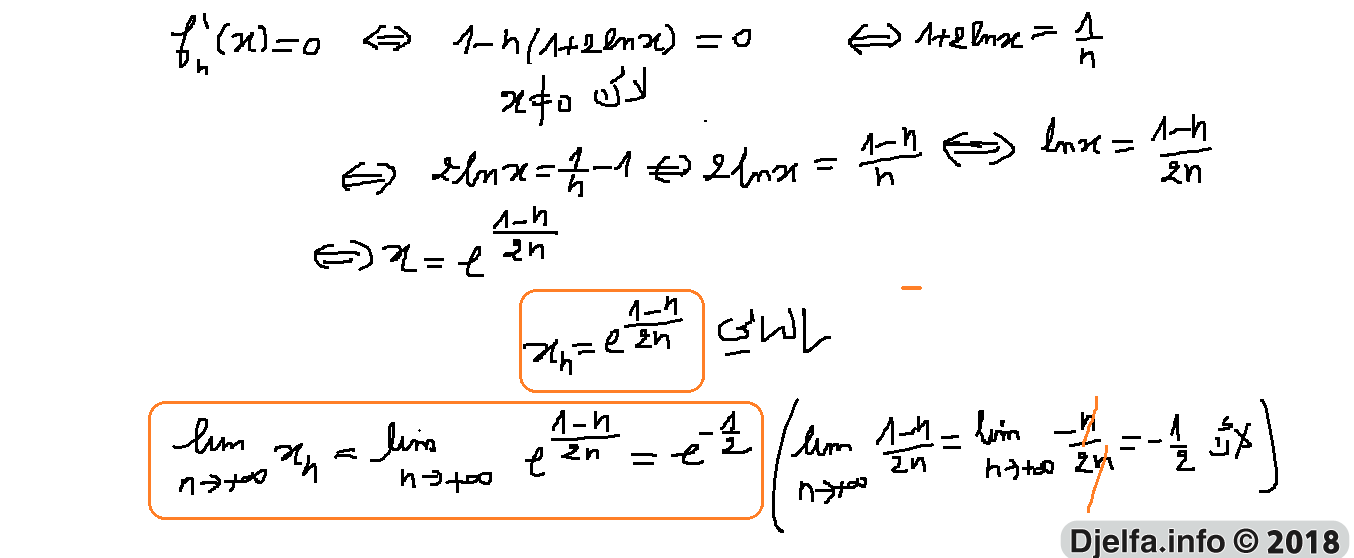 f'ₙ(x)=0 ⇔ 1-n(1+2lnx)=0 ⇔ 1+2lnx = 1/n
x≠0 لأن
⇔ 2lnx = 1/n - 1 ⇔ 2lnx = (1-n)/n ⇔ lnx = (1-n)/2n
⇔ x = e^((1-n)/2n)
xₙ = e^((1-n)/2n) بالتالي
lim n→+∞ xₙ = lim n→+∞ e^((1-n)/2n) = e^(-1/2) (lim n→+∞ (1-n)/2n = lim n→+∞ -n/2n = -1/2 لأن)
Djelfa.info © 2018